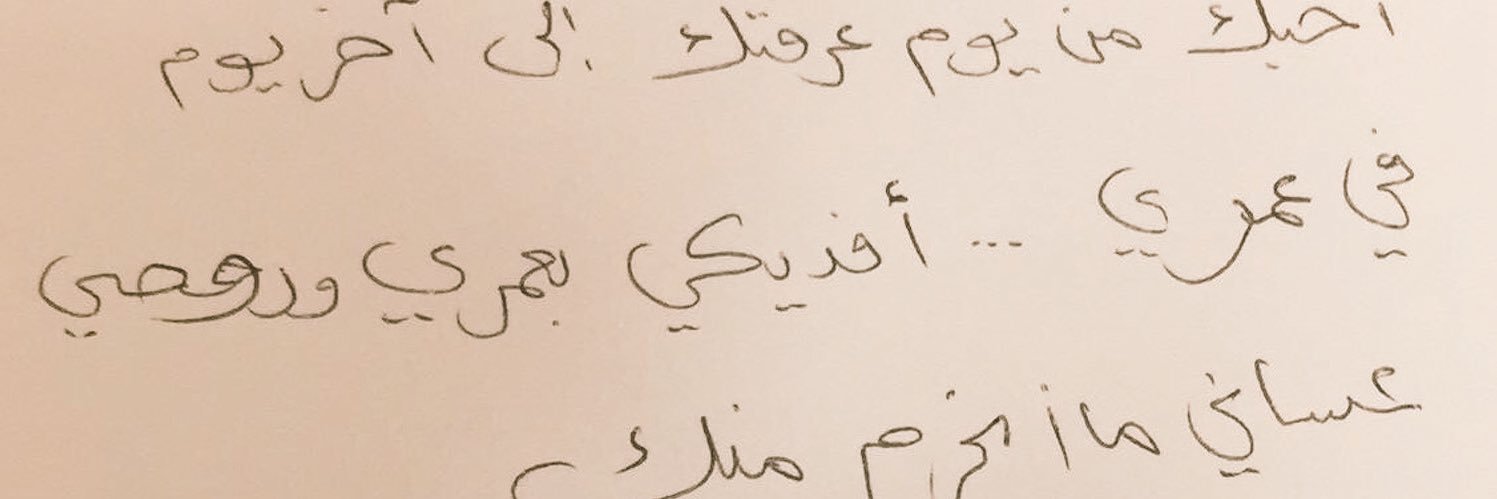 احبك من يوم عرفتك إلى آخر يوم
في عمري ... أفديكي بعمري وروحي
عساني ما أنحرم منك